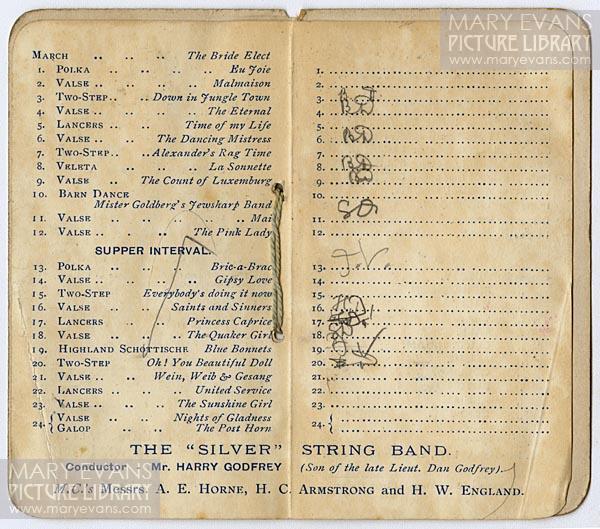 MARY EVANS
PICTURE LIBRARY
www.maryevans.com
MARCH .. .. .. The Bride Elect
1. POLKA .. .. .. Eu Joie
2. VALSE .. .. .. Malmaison
3. TWO-STEP .. .. Down in Jungle Town
4. VALSE .. .. .. The Eternal
5. LANCERS .. .. Time of my Life
6. VALSE .. .. The Dancing Mistress
7. TWO-STEP .. .. Alexander's Rag Time
8. VELETA .. .. La Sonnette
9. VALSE .. The Count of Luxemburg
10. BARN DANCE
Mister Goldberg's Jewsharp Band
11. VALSE .. .. .. Mai
12. VALSE .. .. The Pink Lady
SUPPER INTERVAL.
13. POLKA .. .. Bric-a-Brac
14. VALSE .. .. .. Gipsy Love
15. TWO-STEP Everybody's doing it now
16. VALSE .. Saints and Sinners
17. LANCERS .. Princess Caprice
18. VALSE .. .. The Quaker Girl
19. HIGHLAND SCHOTTISCHE Blue Bonnets
20. TWO-STEP Oh! You Beautiful Doll
21. VALSE .. Wein, Weib & Gesang
22. LANCERS .. .. United Service
23. VALSE .. .. The Sunshine Girl
24. { VALSE Nights of Gladness
GALOP .. .. The Post Horn
1.
2.
3.
4.
5.
6.
7.
8.
9.
10.
11.
12.
13.
14.
15.
16.
17.
18.
19.
20.
21.
22.
23.
24. {
THE "SILVER" STRING BAND.
Conductor Mr. HARRY GODFREY (Son of the late Lieut. Dan Godfrey).
M.C.'s Messrs. A. E. HORNE, H. C. ARMSTRONG and H. W. ENGLAND.
MARY EVANS
PICTURE LIBRARY
www.maryevans.com